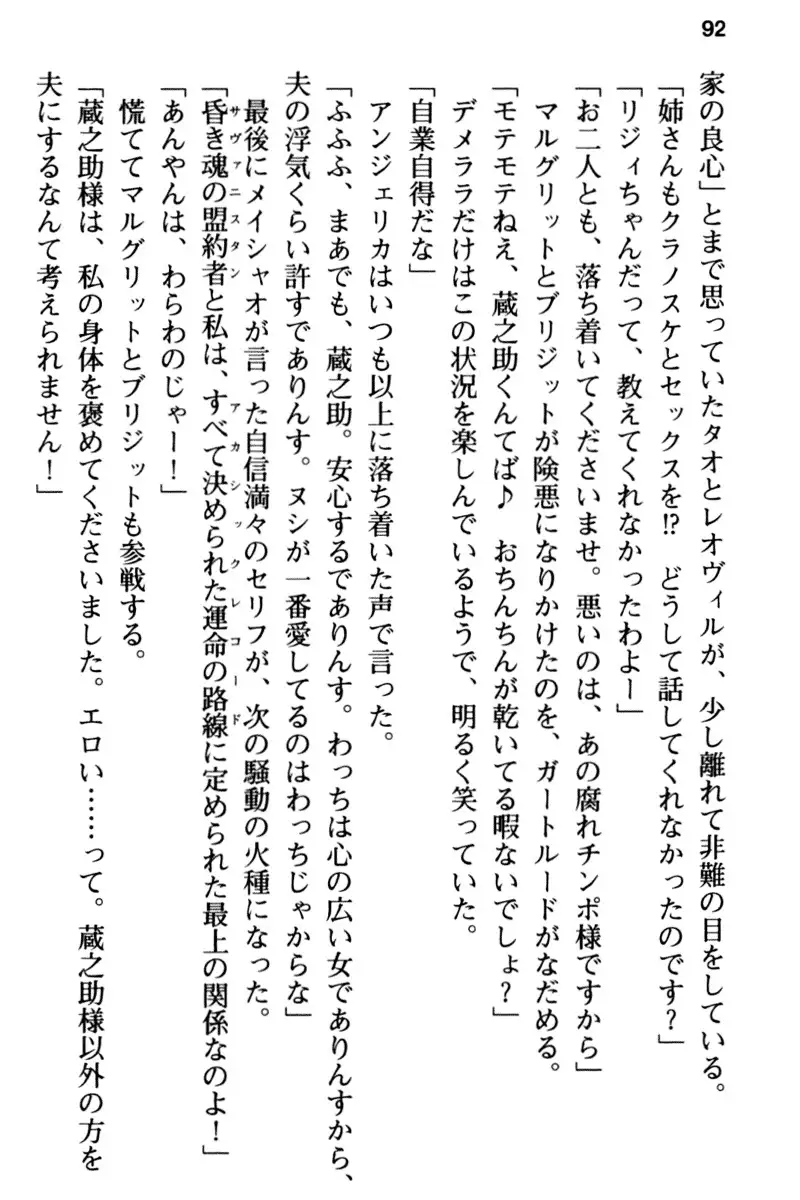 92
家の良心」とまで思っていたタオとレオヴィルが、少し離れて非難の目をしている。
「姉さんもクラノスケとセックスを!?　どうして話してくれなかったのです？」
「リジィちゃんだって、教えてくれなかったわよー」
「お二人とも、落ち着いてくださいませ。悪いのは、あの腐れチンポ様ですから」
マルグリットとブリジットが険悪になりかけたのを、ガートルードがなだめる。
「モテモテねえ、蔵之助くんてば♪　おちんちんが乾いてる暇ないでしょ？」
デメララだけはこの状況を楽しんでいるようで、明るく笑っていた。
「自業自得だな」
アンジェリカはいつも以上に落ち着いた声で言った。
「ふふふ、まあでも、蔵之助。安心するでありんす。わっちは心の広い女でありんすから、
夫の浮気くらい許すでありんす。ヌシが一番愛してるのはわっちじゃからな」
最後にメイシャオが言った自信満々のセリフが、次の騒動の火種になった。
サヴァニスタン
アカシックレコード
「昏き魂の盟約者と私は、すべて決められた運命の路線に定められた最上の関係なのよ！」
「あんやんは、わらわのじゃー！」
慌ててマルグリットとブリジットも参戦する。
「蔵之助様は、私の身体を褒めてくださいました。エロい……って。蔵之助様以外の方を
夫にするなんて考えられません！」